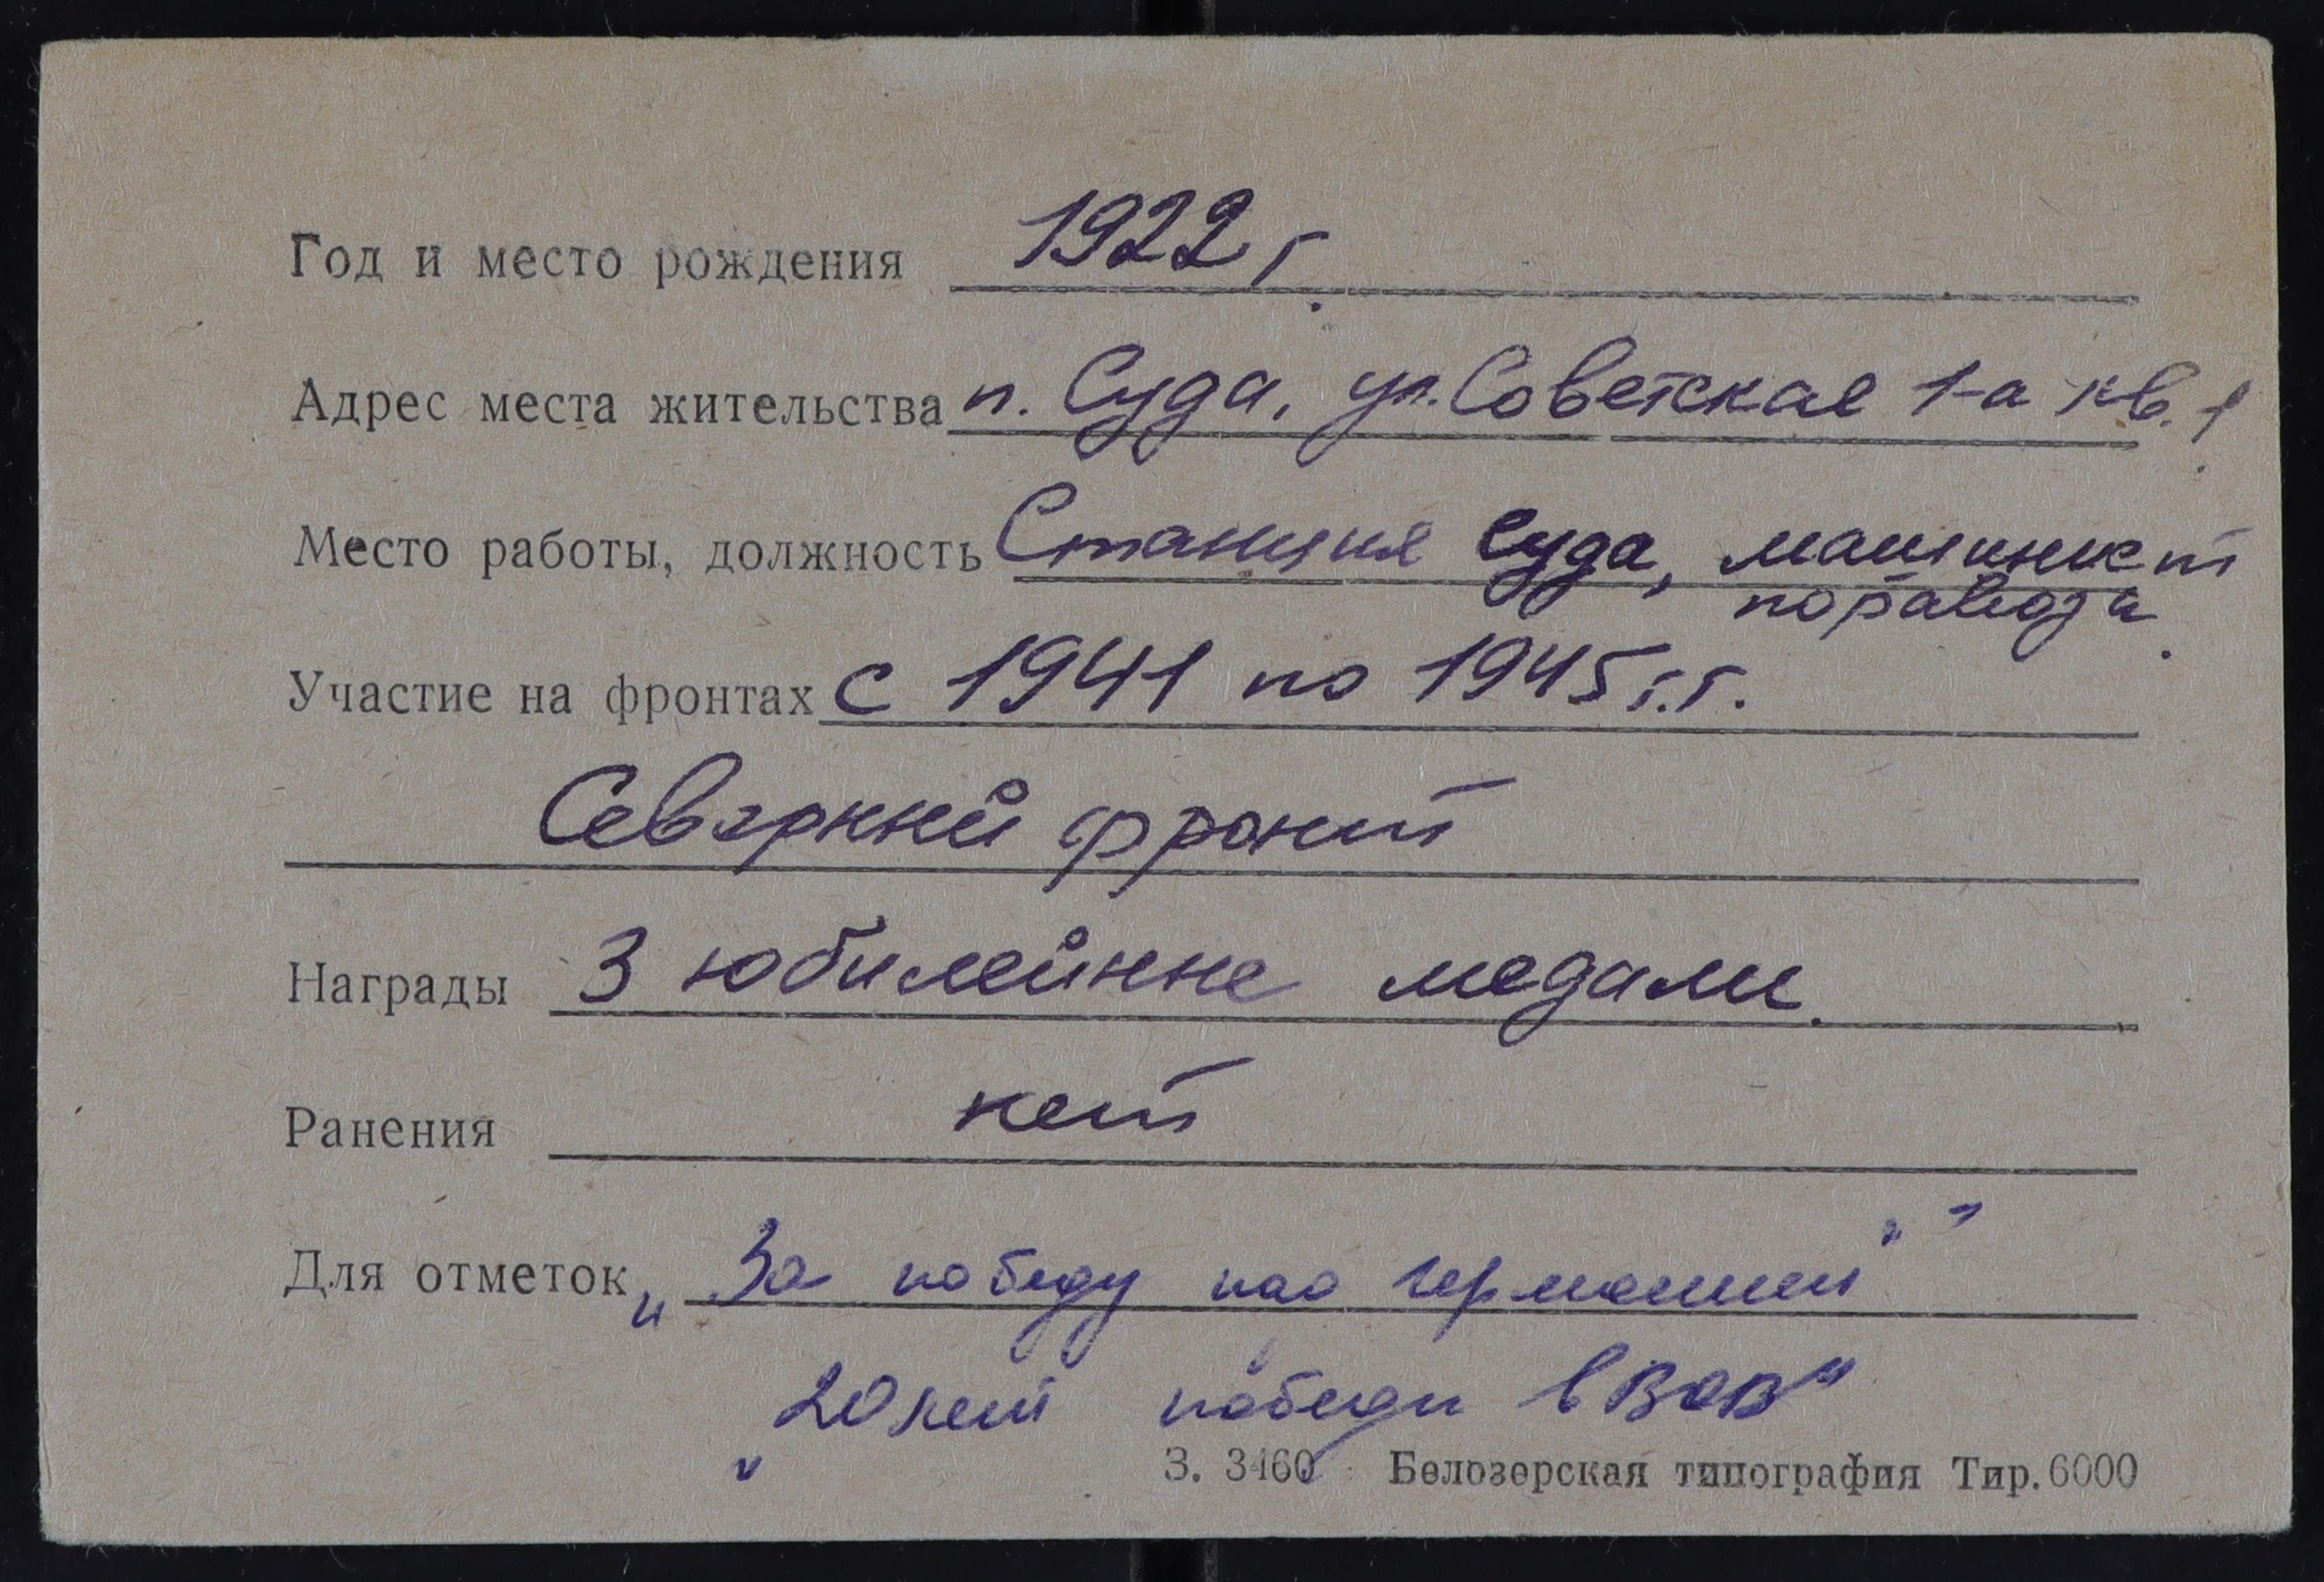 Год и место рождения 1922 г.
Адрес места жительства п. Суда, ул. Советская 1-а кв. 1.
Место работы, должность Станция Суда, машинист
паровоза.
Участие на фронтах с 1941 по 1945 г.г.
Северный фронт
Награды 3 юбилейные медали.
Ранения нет
Для отметок „За победу над Германией"
„20 лет победы в ВОВ"
З. 3460 Белозерская типография Тир. 6000